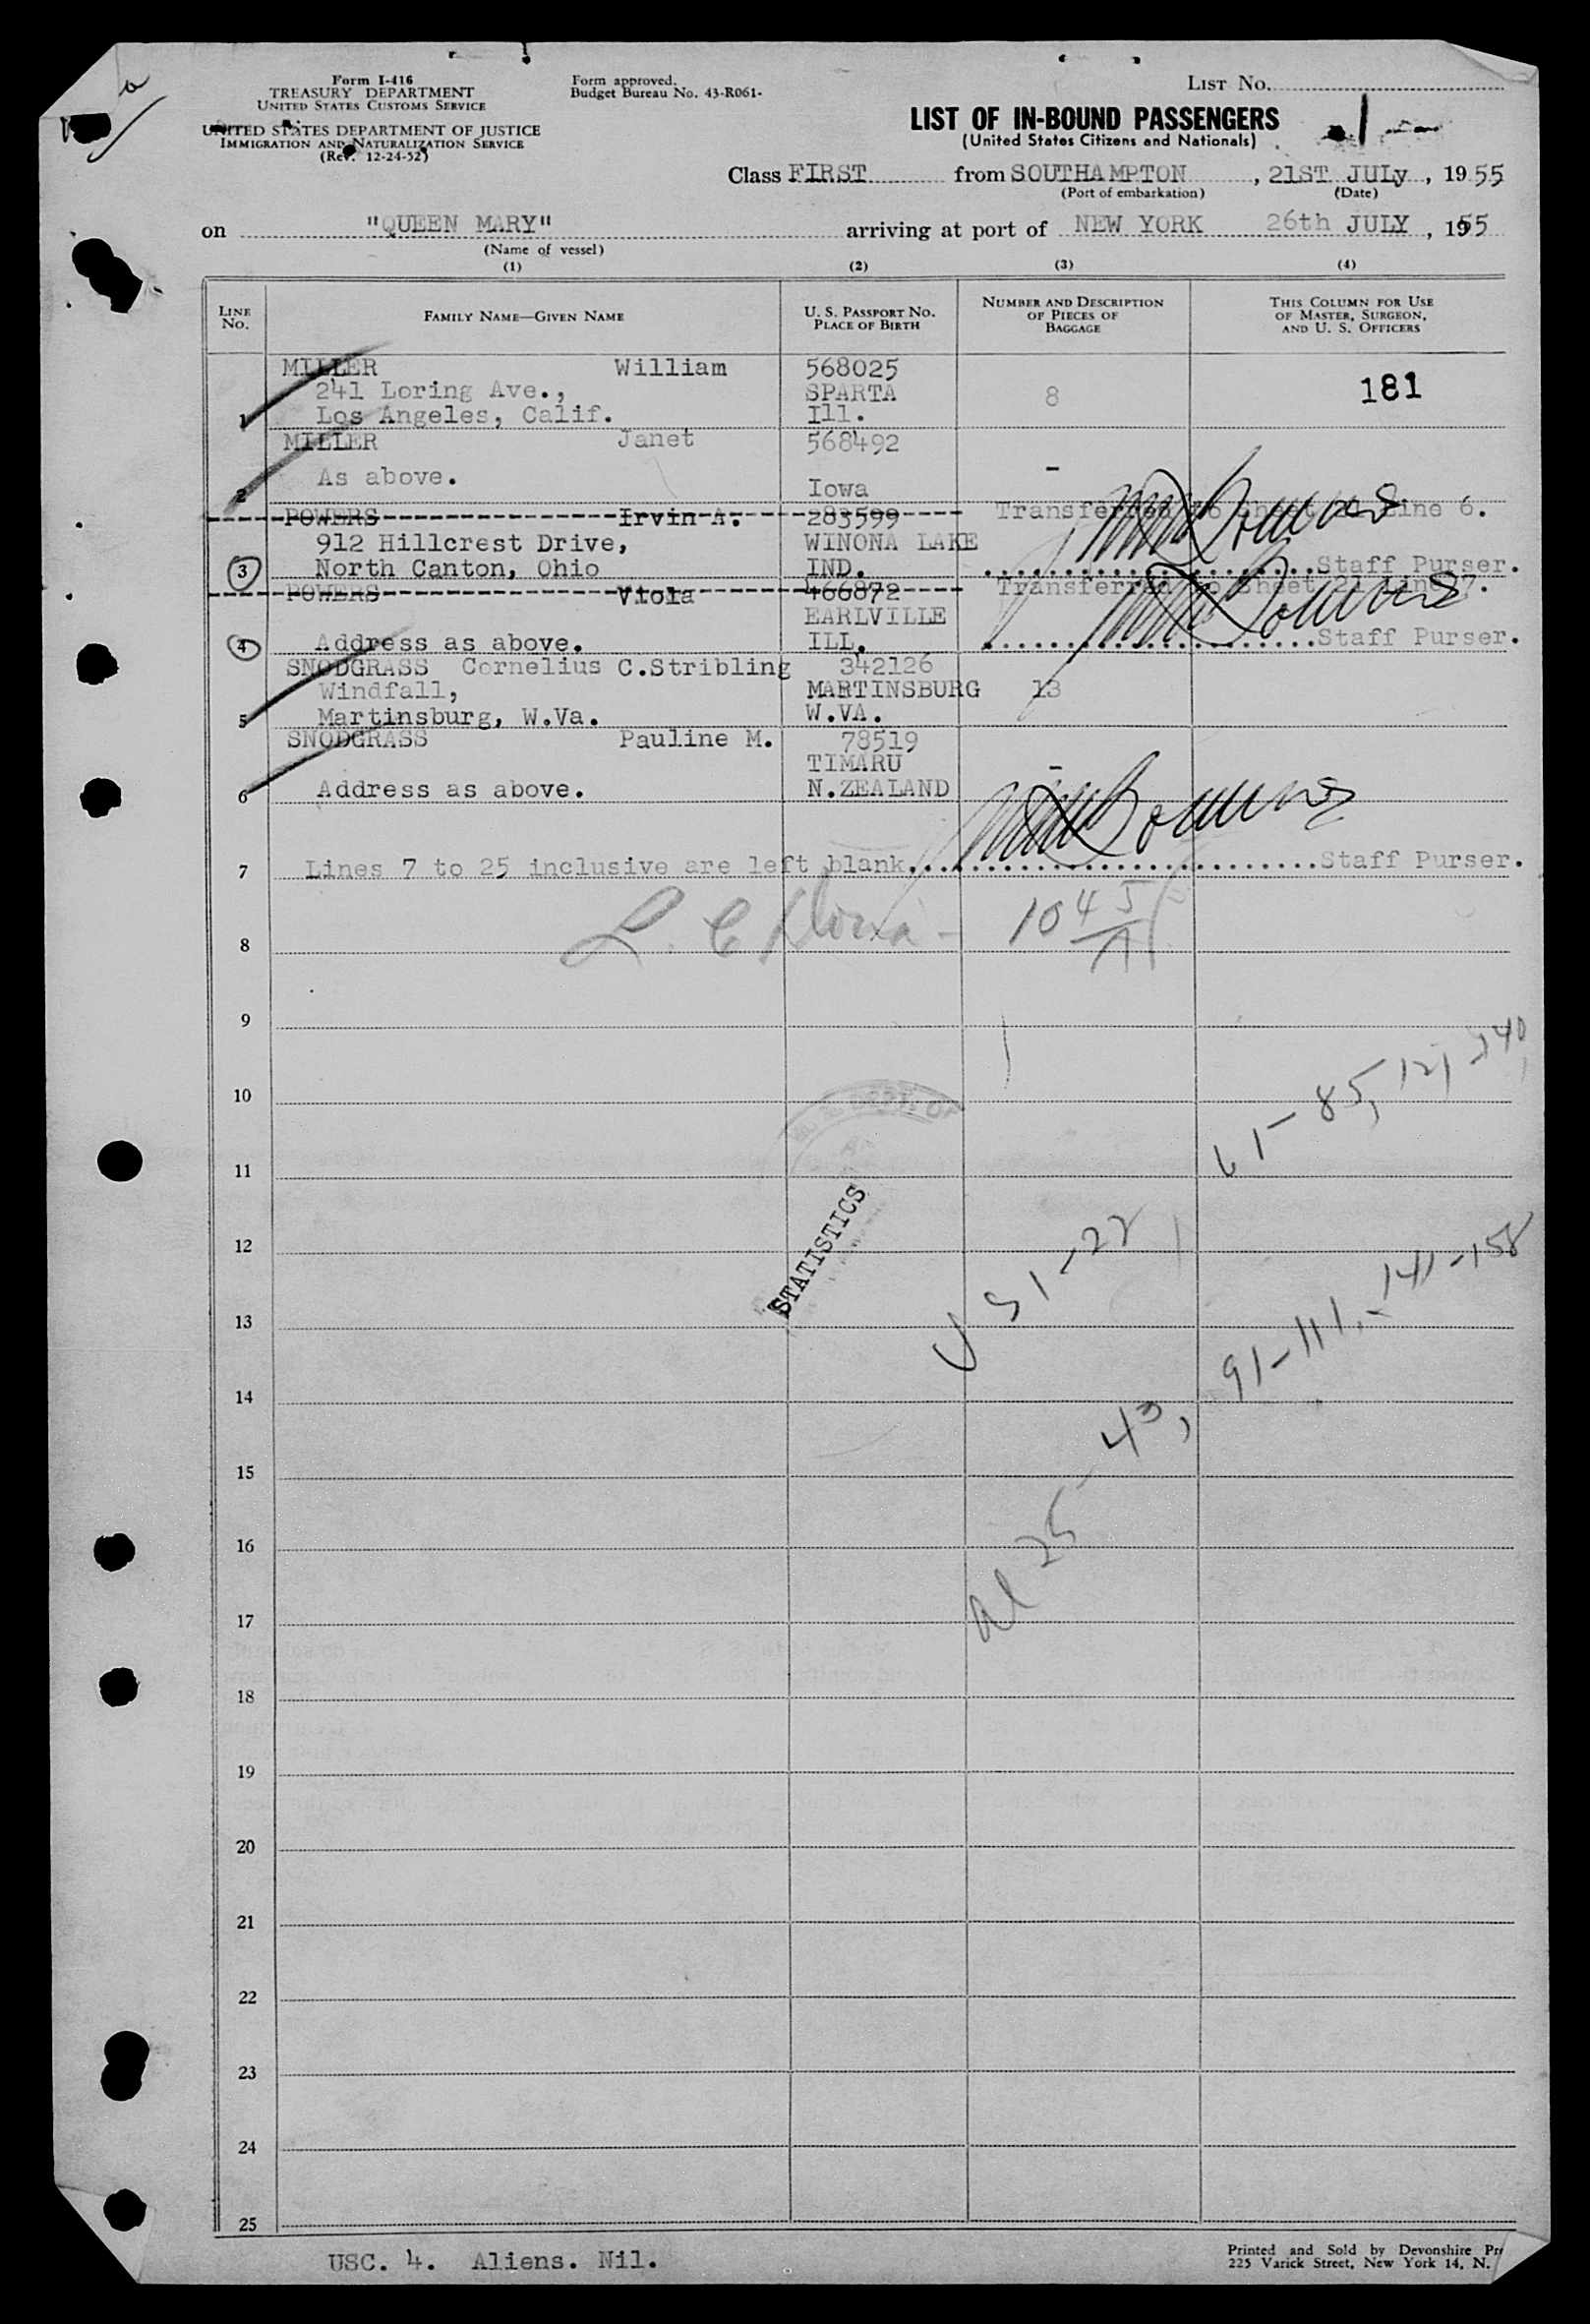 Form I-416
TREASURY DEPARTMENT
UNITED STATES CUSTOMS SERVICE
UNITED STATES DEPARTMENT OF JUSTICE
IMMIGRATION AND NATURALIZATION SERVICE
(Rev. 12-24-52)
Form approved.
Budget Bureau No. 43-R061-
LIST NO.
LIST OF IN-BOUND PASSENGERS
(United States Citizens and Nationals)
1
Class FIRST from SOUTHAMPTON, 21ST JULy, 1955
(Port of embarkation) (Date)
on "QUEEN MARY" arriving at port of NEW YORK 26th JULY, 1955
(Name of vessel)
(1) (2) (3) (4)
LINE No. FAMILY NAME—GIVEN NAME U. S. PASSPORT NO. PLACE OF BIRTH NUMBER AND DESCRIPTION OF PIECES OF BAGGAGE THIS COLUMN FOR USE OF MASTER, SURGEON, AND U. S. OFFICERS
MILLER William 568025
241 Loring Ave., SPARTA 8 181
1 Los Angeles, Calif. Ill.
MILLER Janet 568492
As above. -
2 Iowa
POWERS Irvin A. 283599 Transferred to Sheet Line 6.
912 Hillcrest Drive, WINONA LAKE
3 North Canton, Ohio IND. Staff Purser.
POWERS Viola 466872 Transferred to Sheet 21 Line 7.
EARLVILLE
4 Address as above. ILL. Staff Purser.
SNODGRASS Cornelius C.Stribling 342126
Windfall, MARTINSBURG 13
5 Martinsburg, W.Va. W.VA.
SNODGRASS Pauline M. 78519
TIMARU -
6 Address as above. N.ZEALAND
7 Lines 7 to 25 inclusive are left blank. Staff Purser.
8
9
10
11
12
13
14
15
16
17
18
19
20
21
22
23
24
25
1045
61-85, 121-140,
U S 1-22
91-111, - 141-158
al 25-43,
U.S. DEPT. OF
STATISTICS
USC. 4. Aliens. Nil.
Printed and Sold by Devonshire
225 Varick Street, New York 14, N.